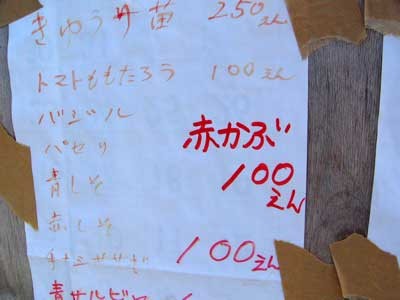 きゅうり苗 250えん
トマトももたろう 100えん
バジル
パセリ
青しそ
赤しそ
赤かぶ
100
えん
100えん
青サルビア